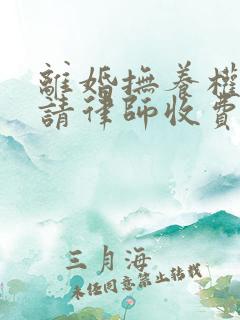 離婚撫養權
請律師收費
三月海
未經同意禁止轉載